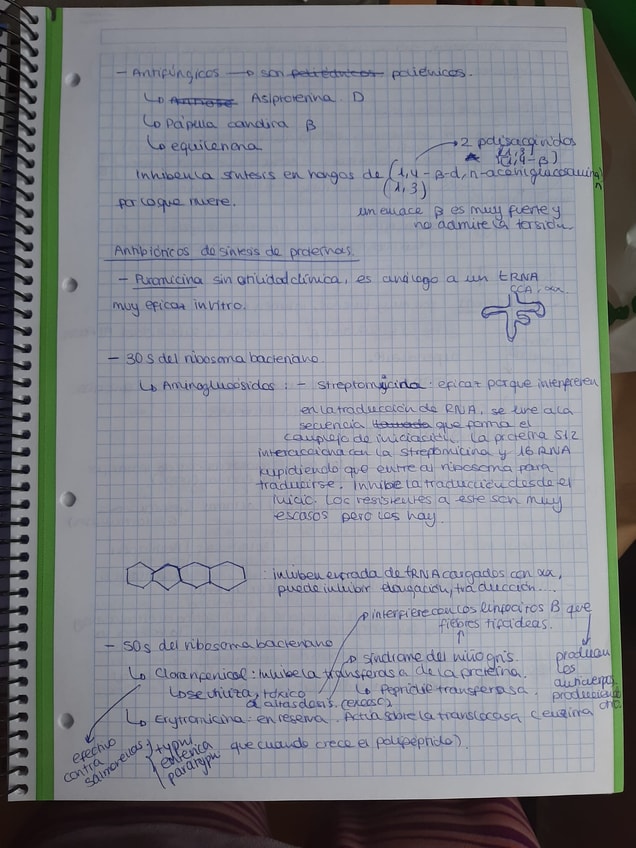 - Antifúngicos → son poliénicos.
↳ Asiproterina D
↳ Papulla candira B
↳ equilenona
→ 2 polisacáridos
(1,3)
(1,4-β)
Inhiben la síntesis en hongos de (1,4-β-d, n-acetilglucosamina)n
(1,3)
por lo que muere.
un enlace β es muy fuerte y
no admite la torsión
Antibióticos de síntesis de proteínas.
- Puromicina sin actividad clínica, es análogo a un tRNA
muy eficaz in vitro.
CCA, αα
- 30S del ribosoma bacteriano.
↳ Aminoglucósidos: - Streptomicida: eficaz porque interfieren
en la traducción de RNA, se une a la
secuencia que forma el
complejo de iniciación. La proteína S12
interacciona con la streptomicina y 16 RNA
impidiendo que entre al ribosoma para
traducirse. Inhibe la traducción desde el
inicio. Los resistentes a este son muy
escasos pero los hay.
: inhiben entrada de tRNA cargados con αα,
puede inhibir elongación, traducción...
→ interfiere con los linfocitos B que
fiebres tifoideas.
produzcan
los
anticuerpos
- 50S del ribosoma bacteriano
→ síndrome del niño gris.
↳ Cloranfenicol: inhibe la transferasa de la proteína.
tóxico
↳ Peptidil transferasa.
a altas dosis. (exceso)
↳ Erytromicina: en reserva. Actúa sobre la translocasa (enzima
que cuando crece el polipéptido).
efectivo
contra
salmonellas
typhi
entérica
paratyphi